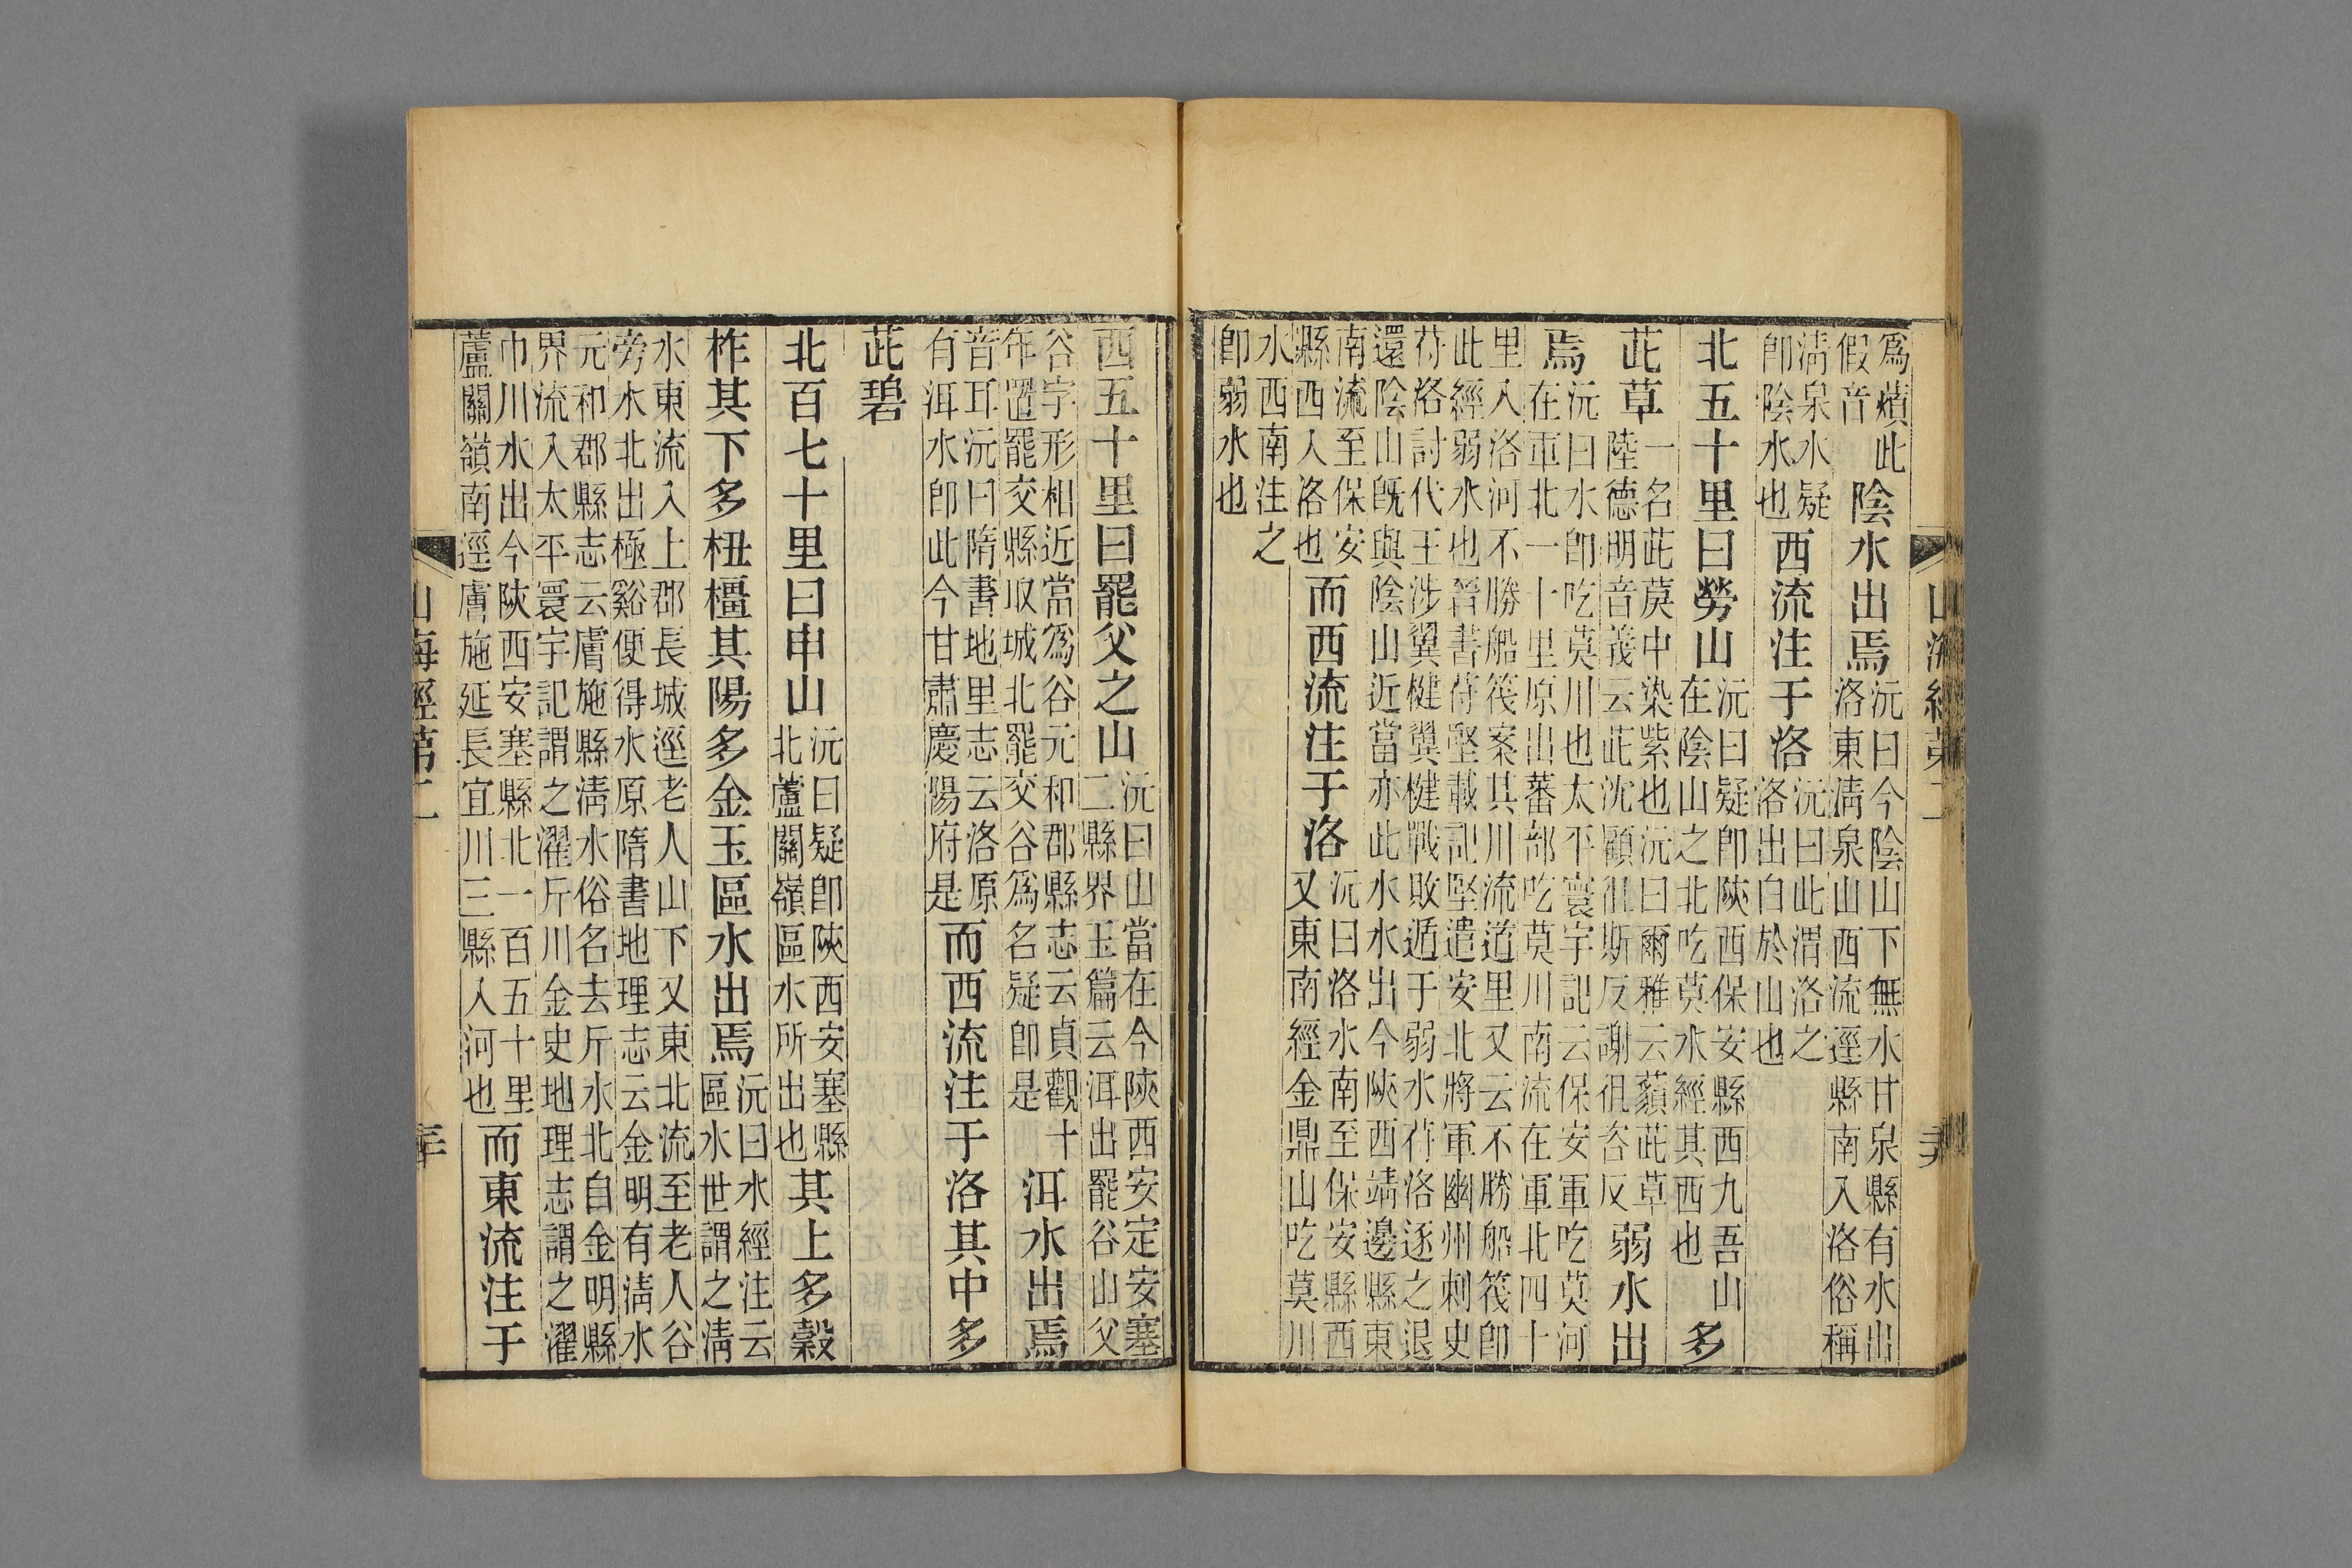 為蕡此假音陰水出焉沅曰今陰山下無水甘泉縣有水出洛東淸泉山西流逕縣南入洛俗稱
淸泉水疑卽陰水也西流注于洛沅曰此渭洛之洛出白於山也
北五十里曰勞山沅曰疑卽陝西保安縣西九吾山在陰山之北吃莫水經其西也多
茈草一名茈䓞中染紫也沅曰爾雅云藐茈草陸德明音義云茈沈顧徂斯反謝徂咨反弱水出
焉沅曰水卽吃莫川也太平寰宇記云保安軍吃莫河在軍北一十里原出蕃部吃莫川南流在軍北四十
里入洛河不勝船筏案其川流道里又云不勝船筏卽此經弱水也晉書苻堅載記堅遣安北將軍幽州刺史
苻洛討代王涉翼犍翼犍戰敗遁于弱水苻洛逐之退還陰山旣與陰山近當亦此水水出今陝西靖邊縣東
南流至保安縣西入洛也而西流注于洛沅曰洛水南至保安縣西又東南經金鼎山吃莫川
水西南注之卽弱水也
山海經第二
西五十里曰罷父之山沅曰山當在今陝西安定安塞二縣界玉篇云洱出罷谷山父
谷字形相近當為谷元和郡縣志云貞觀十年置罷交縣取城北罷交谷為名疑卽是洱水出焉
音耳沅曰隋書地里志云洛原有洱水卽此今甘肅慶陽府是而西流注于洛其中多
茈碧
北百七十里曰申山沅曰疑卽陝西安塞縣北蘆關嶺區水所出也其上多榖
柞其下多杻橿其陽多金玉區水出焉沅曰水經注云區水世謂之淸
水東流入上郡長城逕老人山下又東北流至老人谷旁水北出極谿便得水原隋書地理志云金明有淸水
元和郡縣志云膚施縣淸水俗名去斤水北自金明縣界流入太平寰宇記謂之濯斤川金史地理志謂之濯
巾川水出今陝西安塞縣北一百五十里蘆關嶺南逕膚施延長宜川三縣入河也而東流注于
山海經第二